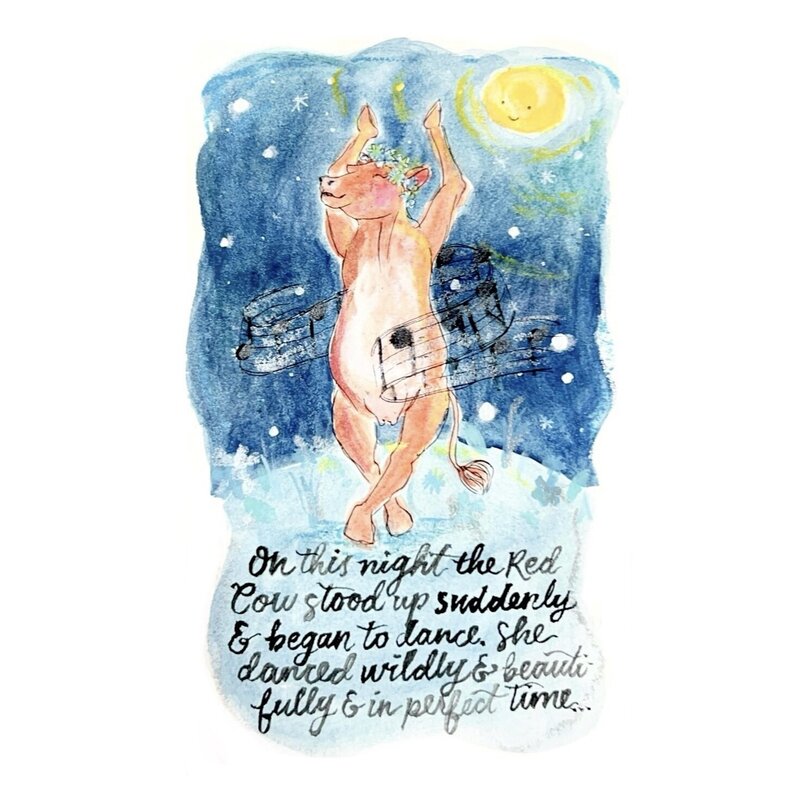 On this night the Red
Cow stood up suddenly
& began to dance. She
danced wildly & beauti-
fully & in perfect time...